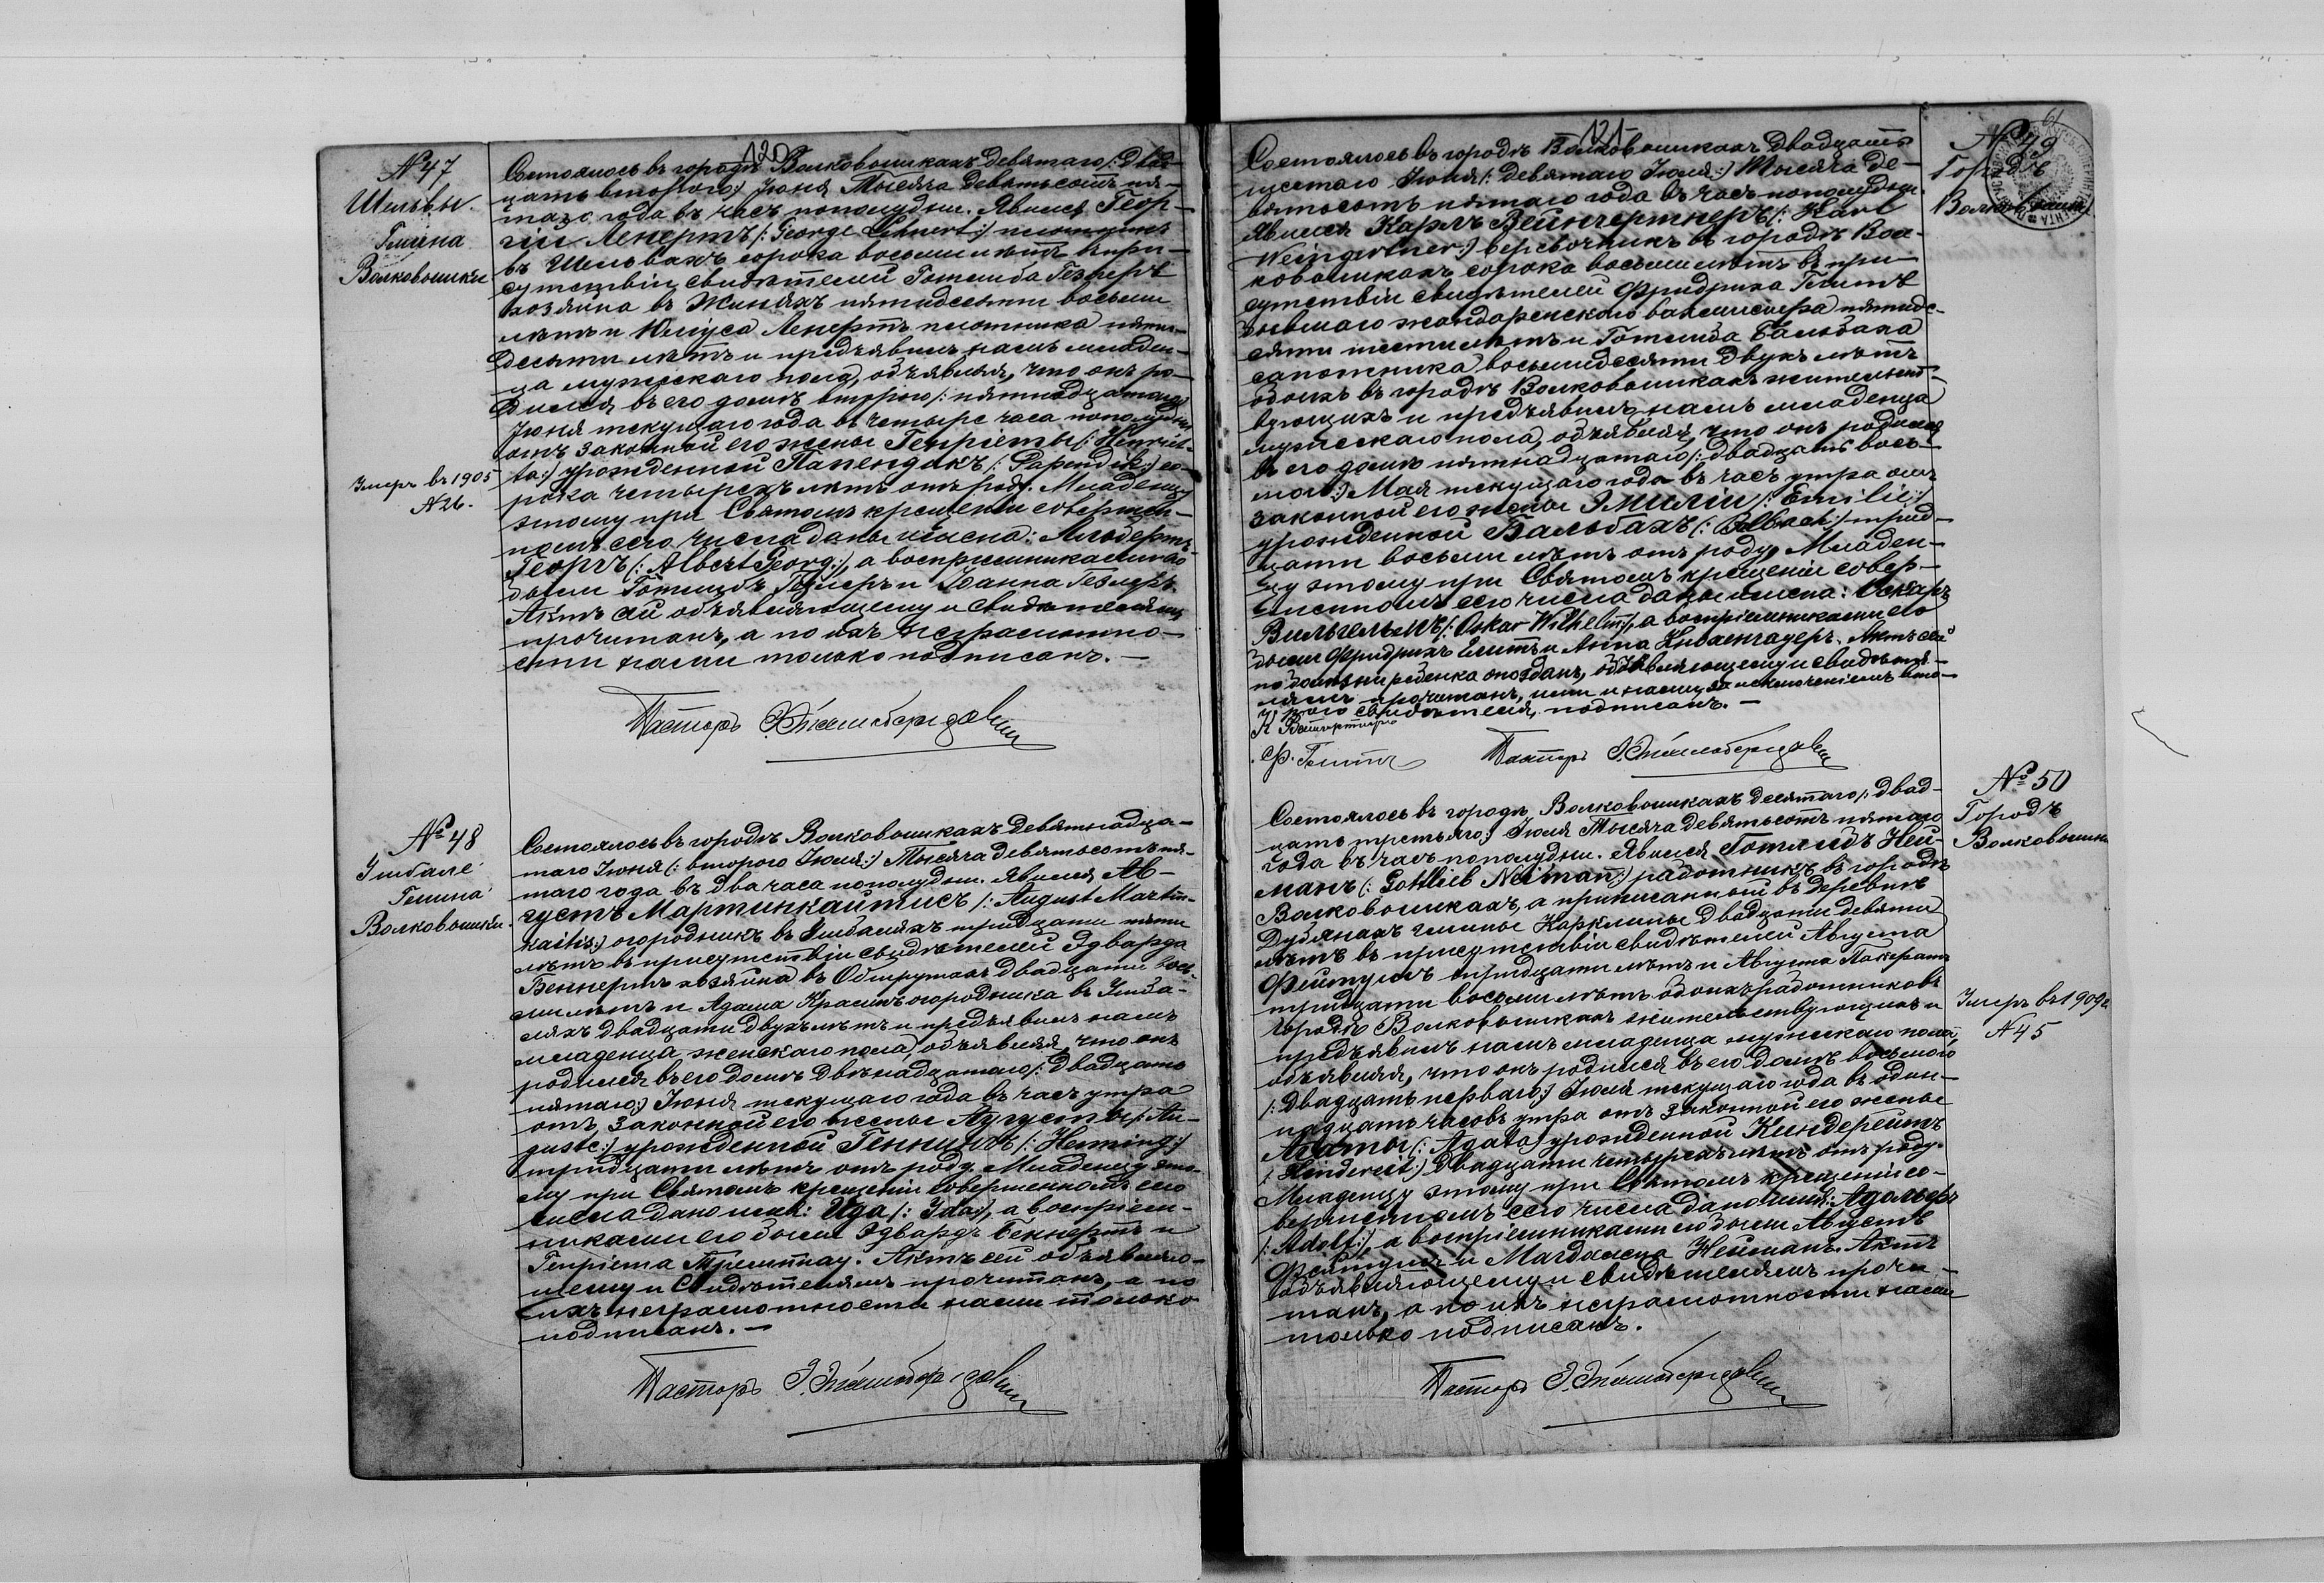 120
№ 47
Шельвы.
Гмина
Волковышки
Умеръ въ 1905
№ 26.
Состоялось въ городѣ Волковышкахъ девятаго /: двад-
цать втораго :/ Іюня Тысяча девятьсотъ пя-
таго года въ часъ пополудни. Явился Геор-
гій Ленертъ /: George Lehnert :/ плотникъ
въ Шельвахъ сорока восьми лѣтъ въ при-
сутствіи свидѣтелей Готлиба
хозяина въ пятидесяти восьми
лѣтъ и Юліуса Ленертъ плотника пяти-
десяти лѣтъ и предъявилъ намъ младен-
ца мужескаго пола, объявляя, что онъ ро-
дился въ его домѣ второго /: пятнадцатаго
Іюня текущаго года въ четыре часа пополудни
отъ законной его жены Генріеты /: Henriet-
ta :/ урожденной Папендикъ /: Papendik :/ со-
рока четырехъ лѣтъ отъ роду. Младенцу
этому при Святомъ крещеніи совершен-
номъ сего числа даны имена: Альбертъ-
Георгъ /: Albert Georg :/, а воспріемниками его
были Готлибъ и Іоанна
Актъ сей объявляющему и свидѣтелямъ
прочитанъ, а по ихъ неграмотно-
сти нами только подписанъ. —
Пасторъ
№ 48
Гмина
Волковышки.
Состоялось въ городѣ Волковышкахъ девятнадца-
таго Іюня /: второго Іюля :/ Тысяча девятьсотъ пя-
таго года въ два часа пополудни. Явился Ав-
густъ Мартинкайтисъ /: August Martin-
kaitis :/ огородникъ въ тридцати пяти
лѣтъ въ присутствіи свидѣтелей Эдварда
Беннертъ хозяина въ двадцати вось-
ми лѣтъ и Адама огородника въ
ляхъ двадцати двухъ лѣтъ и предъявилъ намъ
младенца женскаго пола, объявляя, что онъ
родился въ его домѣ двѣнадцатаго /: двадцать
пятаго :/ Іюня текущаго года въ часъ утра
отъ законной его жены Августы /: Au-
guste :/ урожденной Геннингъ /: Henning :/
тридцати лѣтъ отъ роду. Младенцу это-
му при Святомъ крещеніи совершенномъ сего
числа дано имя: Ида /: Ida :/, а воспріем-
никами его были Эдвардъ Беннертъ и
Генріета Актъ сей объявляю-
щему и Свидѣтелямъ прочитанъ, а по
ихъ неграмотности нами только
подписанъ. —
Пасторъ
121
61
№ 49
Городъ
Волковышки
Состоялось въ городѣ Волковышкахъ двадцать
шестаго Іюня /: девятаго Іюля :/ Тысяча де-
вятьсотъ пятаго года въ часъ пополудни.
Явился Карлъ Вейнгертнеръ /: Karl
Weingertner :/ веревочникъ въ городѣ Вол-
ковышкахъ сорока восьми лѣтъ въ при-
сутствіи свидѣтелей Фридриха
бывшаго жандармскаго вахмистра пятиде-
сяти шести лѣтъ и Готлиба Бальбаха
сапожника восьмидесяти двухъ лѣтъ
обоихъ въ городѣ Волковышкахъ жительст-
вующихъ и предъявилъ намъ младенца
мужескаго пола, объявляя, что онъ родился
въ его домѣ пятнадцатаго /: двадцать вось-
мого :/ Мая текущаго года въ часъ утра отъ
законной его жены Эмиліи /: Emilie :/
урожденной Бальбахъ /: Balbach :/ трид-
цати восьми лѣтъ отъ роду. Младен-
цу этому при Святомъ крещеніи совер-
шенномъ сего числа даны имена: Оскаръ
Вильгельмъ /: Oskar Wilhelm :/, а воспріемниками его
были Фридрихъ и Анна Актъ сей
по болѣзни ребенка опозданъ, объявляющему и свидѣте-
лямъ прочитанъ, ими и нами, за исключеніемъ вто-
рого свидѣтеля, подписанъ. —
К Вейнгертнеръ
Ф.
Пасторъ
№ 50
Городъ
Волковышки
Умеръ въ 1909 г.
№ 45
Состоялось въ городѣ Волковышкахъ десятаго /: двад-
цать третьяго :/ Іюля Тысяча девятьсотъ пятаго
года въ часъ пополудни. Явился Готлибъ Ней-
манъ /: Gottlieb Neiman :/ работникъ въ городѣ
Волковышкахъ, а приписанный въ деревнѣ
гмины двадцати девяти
лѣтъ въ присутствіи свидѣтелей Августа
тридцати лѣтъ и Августа
тридцати восьми лѣтъ обоихъ работниковъ
городѣ Волковышкахъ жительствующихъ и
предъявилъ намъ младенца мужескаго пола,
объявляя, что онъ родился въ его домѣ восьмого
/: двадцать перваго :/ Іюля текущаго года въ один-
надцать часовъ утра отъ законной его жены
Агаты /: Agata :/ урожденной Киндерейтъ
/: Kindereit :/ двадцати четырехъ лѣтъ отъ роду.
Младенцу этому при Святомъ крещеніи со-
вершенномъ сего числа дано имя: Адольфъ
/: Adolf :/, а воспріемниками его были Августъ
и Магдалена Нейманъ. Актъ
объявляющему и свидѣтелямъ прочи-
танъ, а по ихъ неграмотности нами
только подписанъ.
Пасторъ